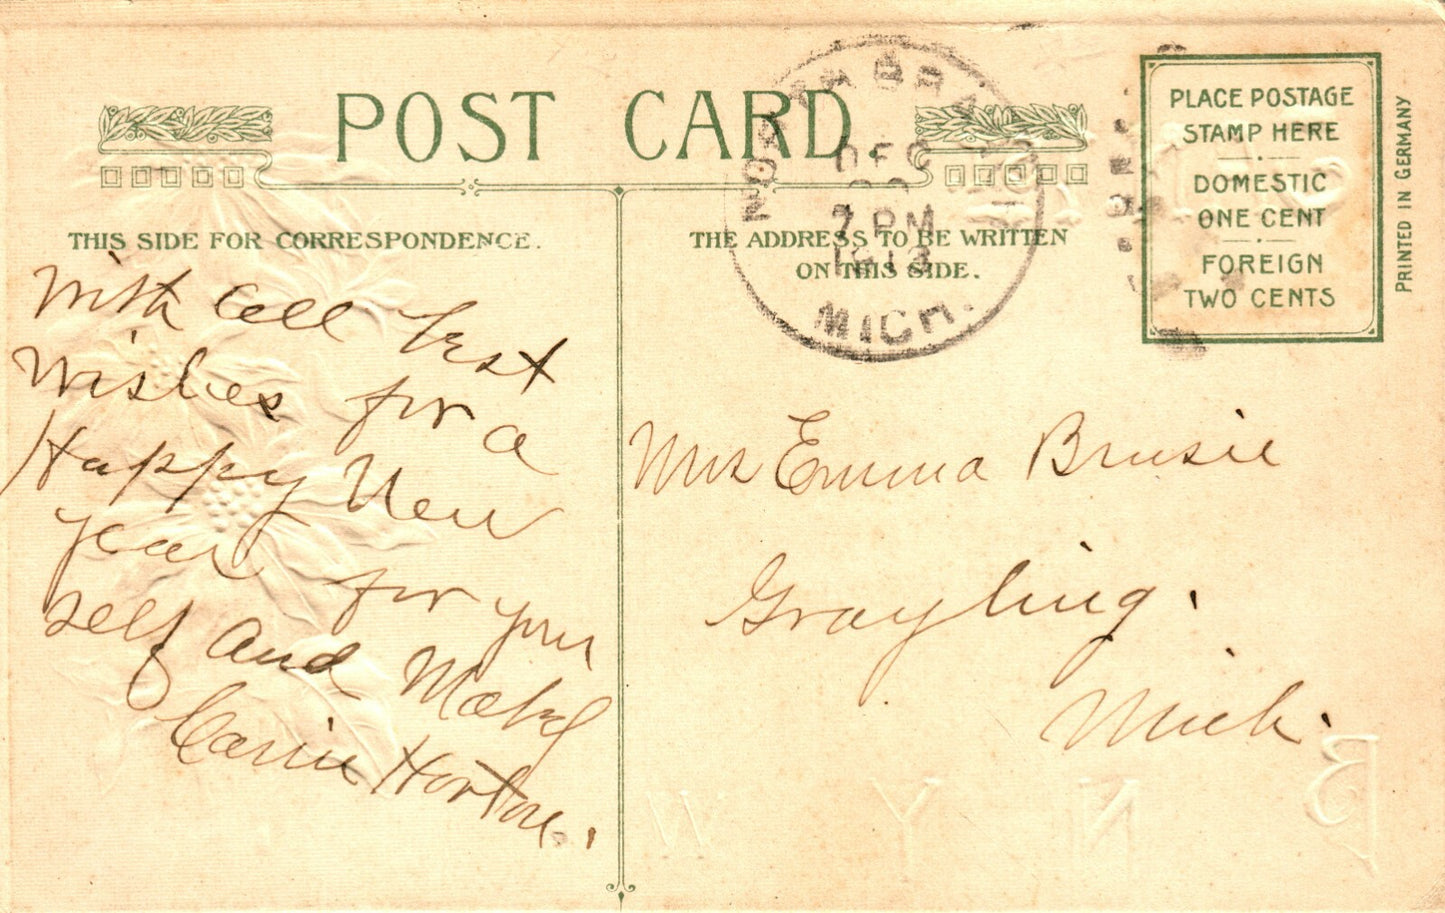 POST CARD.
THIS SIDE FOR CORRESPONDENCE.
THE ADDRESS TO BE WRITTEN
ON THIS SIDE.
PLACE POSTAGE
STAMP HERE
DOMESTIC
ONE CENT
FOREIGN
TWO CENTS
PRINTED IN GERMANY
NORTH BRANCH
DEC
7 PM
1913
MICH.
With all best
Wishes for a
Happy New
year for your
self and Mabel
Carrie Horton.
Mrs Emma Brusie
Grayling.
Mich.